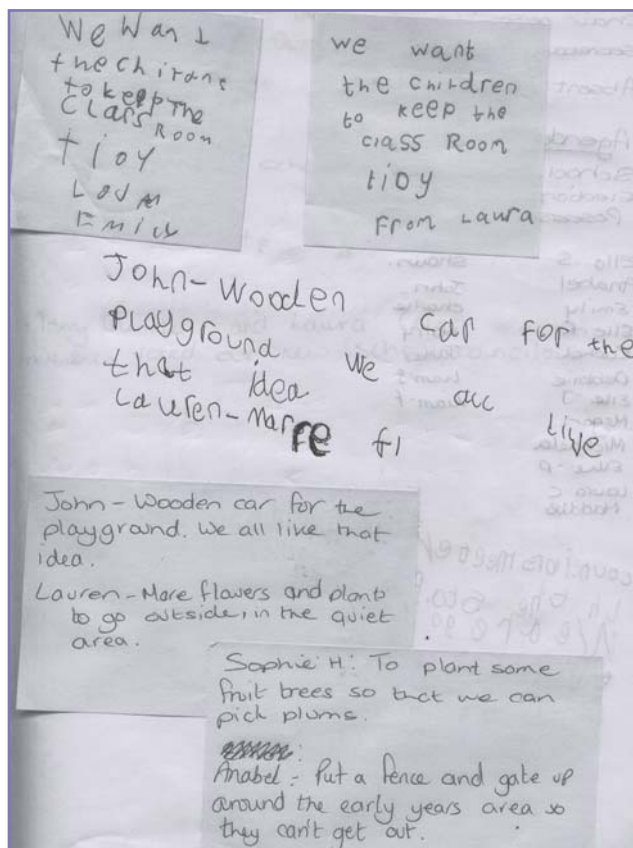 We Want
the Chirans
to keep The
Class Room
tioy
Emily
we want
the children
to keep the
class Room
tioy
From Laura
John-Wooden
Playground car for the
that idea we all like
Lauren-Marre fl
John - Wooden car for the
playground. We all like that
idea.
Lauren - More flowers and plants
to go outside, in the quiet
area.
Sophie H: To plant some
fruit trees so that we can
pick plums.
Anabel - Put a fence and gate up
around the early years area so
they can't get out.